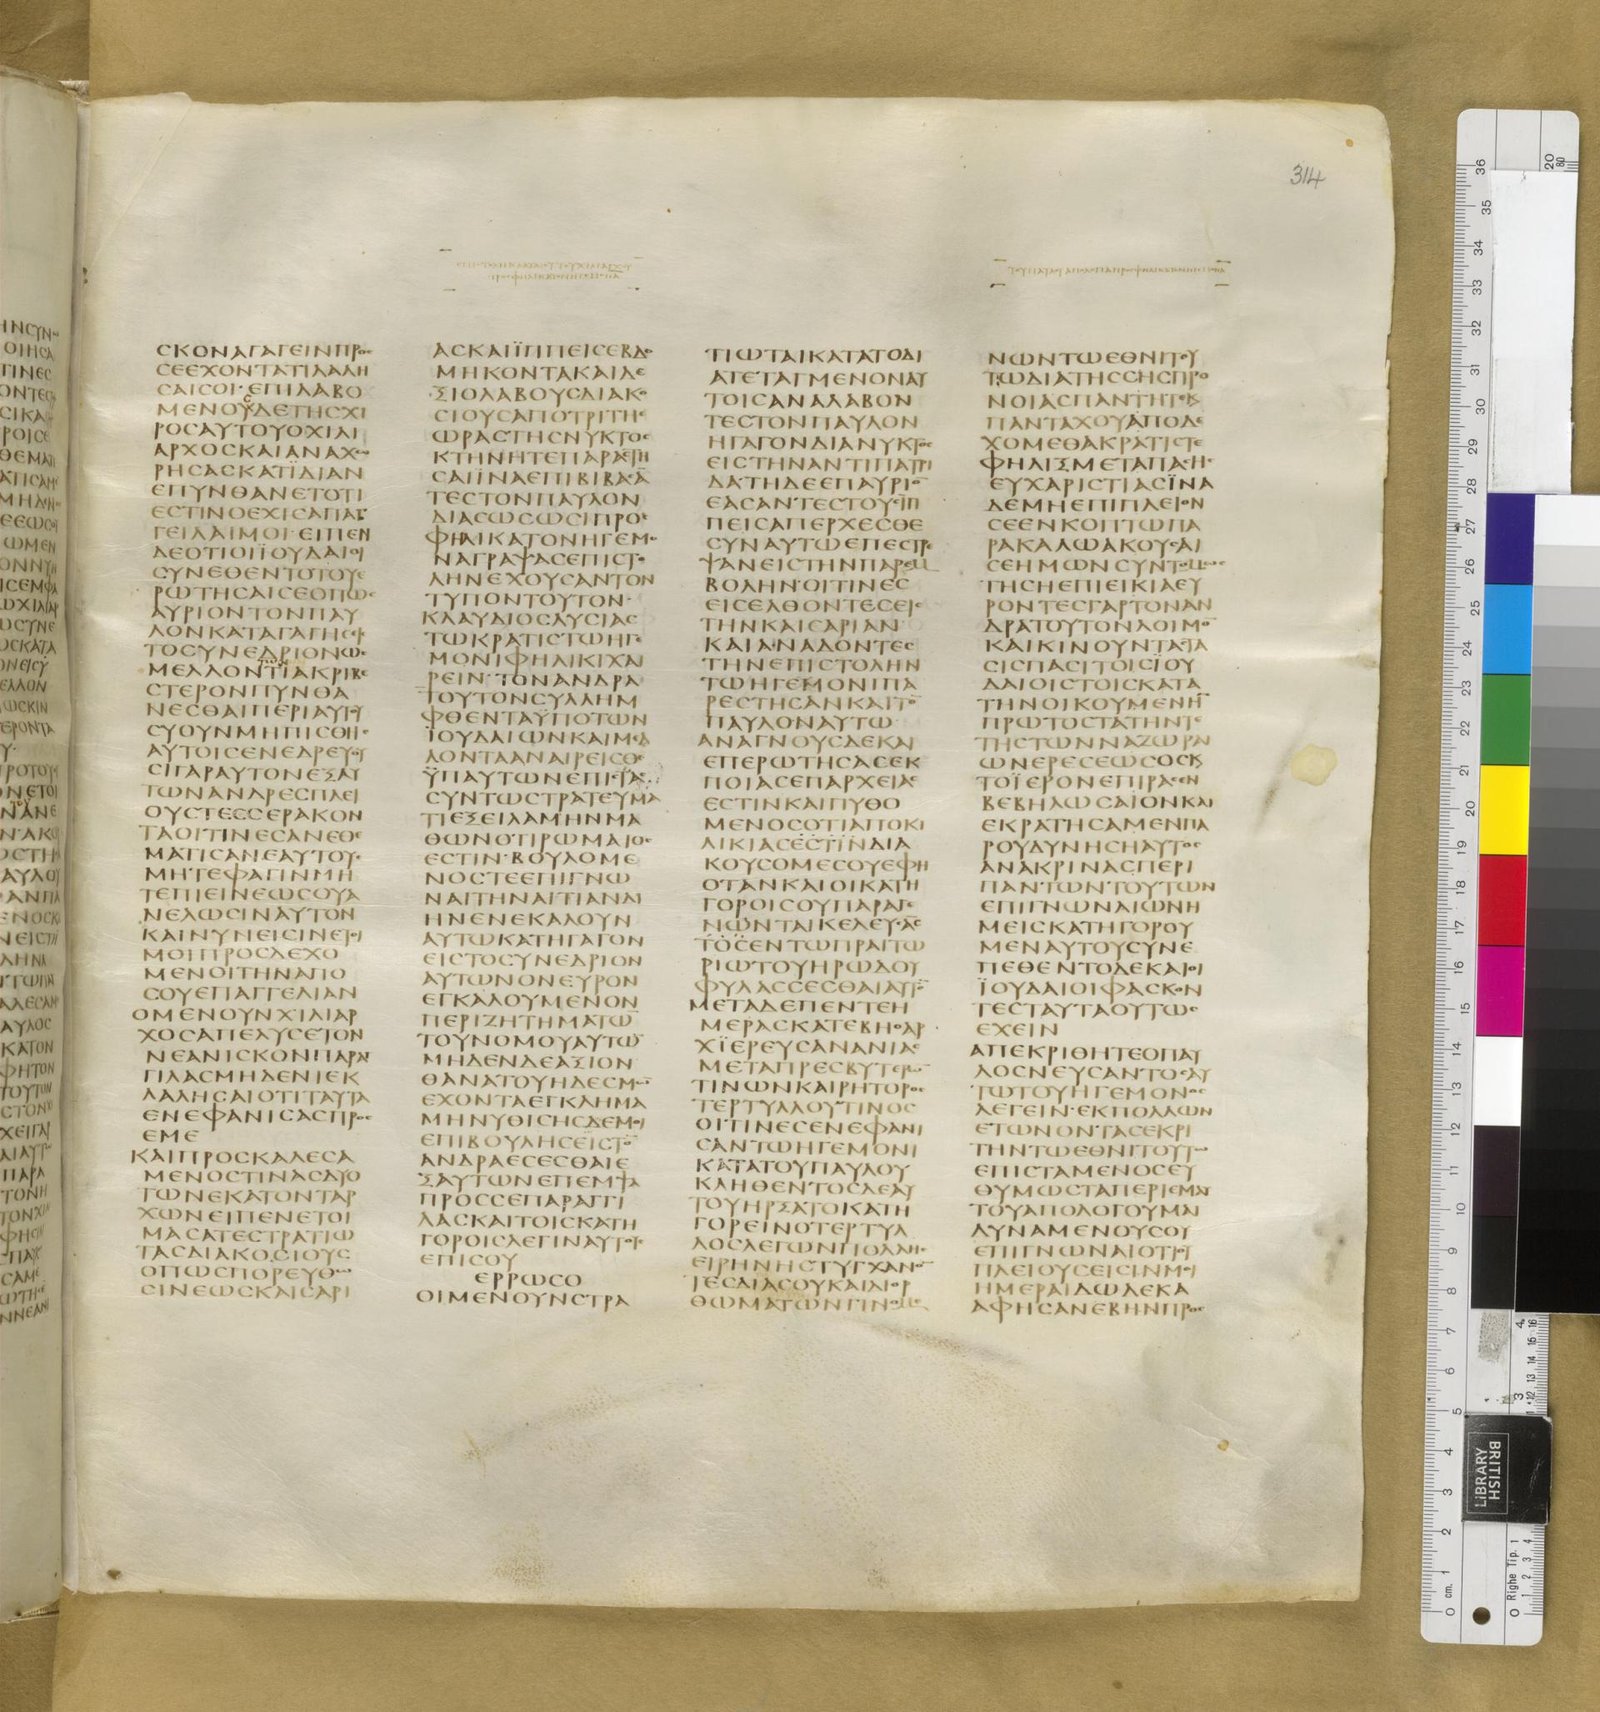 314
ϹΚΟΝΑΓΑΓΕΙΝΠΡΟϹ
ϹΕΕΧΟΝΤΑΤΙΛΑΛΗ
ϹΑΙϹΟΙ·ΕΠΙΛΑΒΟ
ΜΕΝΟΥΔΕΤΗϹΧΙ
ΡΟϹΑΥΤΟΥΟΧΙΛΙ
ΑΡΧΟϹΚΑΙΑΝΑΧΩ
ΡΗϹΑϹΚΑΤΪΔΙΑΝ
ΕΠΥΝΘΑΝΕΤΟΤΙ
ΕϹΤΙΝΟΕΧΙϹΑΠΑΓ
ΓΕΙΛΑΙΜΟΙ·ΕΙΠΕΝ
ΔΕΟΤΙΟΙΪΟΥΔΑΙΟΙ
ϹΥΝΕΘΕΝΤΟΤΟΥΕ
ΡΩΤΗϹΑΙϹΕΟΠΩϹ
ΑΥΡΙΟΝΤΟΝΠΑΥ
ΛΟΝΚΑΤΑΓΑΓΗϹΕΙϹ
ΤΟϹΥΝΕΔΡΙΟΝΩϹ
ΜΕΛΛΟΝΤΙΑΚΡΙΒΕ
ϹΤΕΡΟΝΠΥΝΘΑ
ΝΕϹΘΑΙΠΕΡΙΑΥΤΟΥ
ϹΥΟΥΝΜΗΠΙϹΘΗϹ
ΑΥΤΟΙϹΕΝΕΔΡΕΥΟΥ
ϹΙΓΑΡΑΥΤΟΝΕΞΑΥ
ΤΩΝΑΝΔΡΕϹΠΛΕΙ
ΟΥϹΤΕϹϹΕΡΑΚΟΝ
ΤΑΟΙΤΙΝΕϹΑΝΕΘΕ
ΜΑΤΙϹΑΝΕΑΥΤΟΥϹ
ΜΗΤΕΦΑΓΙΝΜΗ
ΤΕΠΙΕΙΝΕΩϹΟΥΑ
ΝΕΛΩϹΙΝΑΥΤΟΝ
ΚΑΙΝΥΝΕΙϹΙΝΕΤΟΙ
ΜΟΙΠΡΟϹΔΕΧΟ
ΜΕΝΟΙΤΗΝΑΠΟ
ϹΟΥΕΠΑΓΓΕΛΙΑΝ
ΟΜΕΝΟΥΝΧΙΛΙΑΡ
ΧΟϹΑΠΕΛΥϹΕΤΟΝ
ΝΕΑΝΙϹΚΟΝΠΑΡΑΓ
ΓΙΛΑϹΜΗΔΕΝΙΕΚ
ΛΑΛΗϹΑΙΟΤΙΤΑΥΤΑ
ΕΝΕΦΑΝΙϹΑϹΠΡΟϹ
ΕΜΕ
ΚΑΙΠΡΟϹΚΑΛΕϹΑ
ΜΕΝΟϹΤΙΝΑϹΔΥΟ
ΤΩΝΕΚΑΤΟΝΤΑΡ
ΧΩΝΕΙΠΕΝΕΤΟΙ
ΜΑϹΑΤΕϹΤΡΑΤΙΩ
ΤΑϹΔΙΑΚΟϹΙΟΥϹ
ΟΠΩϹΠΟΡΕΥΘΩ
ϹΙΝΕΩϹΚΑΙϹΑΡΙ
ΑϹΚΑΙΪΠΠΕΙϹΕΒΔΟ
ΜΗΚΟΝΤΑΚΑΙΔΕ
ΞΙΟΛΑΒΟΥϹΔΙΑΚΟ
ϹΙΟΥϹΑΠΟΤΡΙΤΗϹ
ΩΡΑϹΤΗϹΝΥΚΤΟϹ
ΚΤΗΝΗΤΕΠΑΡΑϹΤΗ
ϹΑΙΪΝΑΕΠΙΒΙΒΑϹΑ
ΤΕϹΤΟΝΠΑΥΛΟΝ
ΔΙΑϹΩϹΩϹΙΠΡΟϹ
ΦΗΛΙΚΑΤΟΝΗΓΕΜΟ
ΝΑΓΡΑΨΑϹΕΠΙϹΤΟ
ΛΗΝΕΧΟΥϹΑΝΤΟΝ
ΤΥΠΟΝΤΟΥΤΟΝ·
ΚΛΑΥΔΙΟϹΛΥϹΙΑϹ
ΤΩΚΡΑΤΙϹΤΩΗΓΕ
ΜΟΝΙΦΗΛΙΚΙΧΑΙ
ΡΕΙΝ·ΤΟΝΑΝΔΡΑ
ΤΟΥΤΟΝϹΥΛΛΗΜ
ΦΘΕΝΤΑΫΠΟΤΩΝ
ΙΟΥΔΑΙΩΝΚΑΙΜΕΛ
ΛΟΝΤΑΑΝΑΙΡΕΙϹΘΕ
ΫΠΑΥΤΩΝΕΠΙϹΤΑϹ
ϹΥΝΤΩϹΤΡΑΤΕΥΜΑ
ΤΙΕΞΕΙΛΑΜΗΝΜΑ
ΘΩΝΟΤΙΡΩΜΑΙΟϹ
ΕϹΤΙΝ·ΒΟΥΛΟΜΕ
ΝΟϹΤΕΕΠΙΓΝΩ
ΝΑΙΤΗΝΑΙΤΙΑΝΔΙ
ΗΝΕΝΕΚΑΛΟΥΝ
ΑΥΤΩΚΑΤΗΓΑΓΟΝ
ΕΙϹΤΟϹΥΝΕΔΡΙΟΝ
ΑΥΤΩΝΟΝΕΥΡΟΝ
ΕΓΚΑΛΟΥΜΕΝΟΝ
ΠΕΡΙΖΗΤΗΜΑΤΩ̄
ΤΟΥΝΟΜΟΥΑΥΤΩ̄
ΜΗΔΕΝΔΕΑΞΙΟΝ
ΘΑΝΑΤΟΥΗΔΕϹΜΩ̄
ΕΧΟΝΤΑΕΓΚΛΗΜΑ
ΜΗΝΥΘΙϹΗϹΔΕΜΟΙ
ΕΠΙΒΟΥΛΗϹΕΙϹΤΟ̄
ΑΝΔΡΑΕϹΕϹΘΑΙΕ
ΞΑΥΤΩΝΕΠΕΜΨΑ
ΠΡΟϹϹΕΠΑΡΑΓΓΙ
ΛΑϹΚΑΙΤΟΙϹΚΑΤΗ
ΓΟΡΟΙϹΛΕΓΙΝΑΥΤΟΥϹ
ΕΠΙϹΟΥ
ΕΡΡΩϹΟ
ΟΙΜΕΝΟΥΝϹΤΡΑ
ΤΙΩΤΑΙΚΑΤΑΤΟΔΙ
ΑΤΕΤΑΓΜΕΝΟΝΑΥ
ΤΟΙϹΑΝΑΛΑΒΟΝ
ΤΕϹΤΟΝΠΑΥΛΟΝ
ΗΓΑΓΟΝΔΙΑΝΥΚΤΟϹ
ΕΙϹΤΗΝΑΝΤΙΠΑΤΡΙ
ΔΑ·ΤΗΔΕΕΠΑΥΡΙΟ̄
ΕΑϹΑΝΤΕϹΤΟΥϹΪΠ
ΠΕΙϹΑΠΕΡΧΕϹΘΕ
ϹΥΝΑΥΤΩΕΠΕϹΤΡΕ
ΨΑΝΕΙϹΤΗΝΠΑΡΕΜ
ΒΟΛΗΝ·ΟΙΤΙΝΕϹ
ΕΙϹΕΛΘΟΝΤΕϹΕΙϹ
ΤΗΝΚΑΙϹΑΡΙΑΝ
ΚΑΙΑΝΑΔΟΝΤΕϹ
ΤΗΝΕΠΙϹΤΟΛΗΝ
ΤΩΗΓΕΜΟΝΙΠΑ
ΡΕϹΤΗϹΑΝΚΑΙΤΟ̄
ΠΑΥΛΟΝΑΥΤΩ
ΑΝΑΓΝΟΥϹΔΕΚΑΙ
ΕΠΕΡΩΤΗϹΑϹΕΚ
ΠΟΙΑϹΕΠΑΡΧΕΙΑϹ
ΕϹΤΙΝΚΑΙΠΥΘΟ
ΜΕΝΟϹΟΤΙΑΠΟΚΙ
ΛΙΚΙΑϹΕϹΤΙΝΔΙΑ
ΚΟΥϹΟΜΕϹΟΥΕΦΗ
ΟΤΑΝΚΑΙΟΙΚΑΤΗ
ΓΟΡΟΙϹΟΥΠΑΡΑΓΕ
ΝΩΝΤΑΙΚΕΛΕΥϹΑϹ
ΤΟϹΕΝΤΩΠΡΑΙΤΩ
ΡΙΩΤΟΥΗΡΩΔΟΥ
ΦΥΛΑϹϹΕϹΘΑΙΑΥΤΟ̄
ΜΕΤΑΔΕΠΕΝΤΕΗ
ΜΕΡΑϹΚΑΤΕΒΗΟΑΡ
ΧΪΕΡΕΥϹΑΝΑΝΙΑϹ
ΜΕΤΑΠΡΕϹΒΥΤΕΡΩ̄
ΤΙΝΩΝΚΑΙΡΗΤΟΡΟϹ
ΤΕΡΤΥΛΛΟΥΤΙΝΟϹ
ΟΙΤΙΝΕϹΕΝΕΦΑΝΙ
ϹΑΝΤΩΗΓΕΜΟΝΙ
ΚΑΤΑΤΟΥΠΑΥΛΟΥ
ΚΛΗΘΕΝΤΟϹΔΕΑΥ
ΤΟΥΗΡΞΑΤΟΚΑΤΗ
ΓΟΡΕΙΝΟΤΕΡΤΥΛ
ΛΟϹΛΕΓΩΝΠΟΛΛΗϹ
ΕΙΡΗΝΗϹΤΥΓΧΑΝΟ̄
ΤΕϹΔΙΑϹΟΥΚΑΙΔΙΟΡ
ΘΩΜΑΤΩΝΓΙΝΟΜΕ
ΝΩΝΤΩΕΘΝΙΤΟΥ
ΤΩΔΙΑΤΗϹϹΗϹΠΡΟ
ΝΟΙΑϹΠΑΝΤΗΤΕΚΑΙ
ΠΑΝΤΑΧΟΥΑΠΟΔΕ
ΧΟΜΕΘΑΚΡΑΤΙϹΤΕ
ΦΗΛΙΞΜΕΤΑΠΑϹΗϹ
ΕΥΧΑΡΙϹΤΙΑϹΪΝΑ
ΔΕΜΗΕΠΙΠΛΕΙΟΝ
ϹΕΕΝΚΟΠΤΩΠΑ
ΡΑΚΑΛΩΑΚΟΥϹΑΙ
ϹΕΗΜΩΝϹΥΝΤΟΜΩϹ
ΤΗϹΗΕΠΙΕΙΚΙΑΕΥ
ΡΟΝΤΕϹΓΑΡΤΟΝΑΝ
ΔΡΑΤΟΥΤΟΝΛΟΙΜΟ̄
ΚΑΙΚΙΝΟΥΝΤΑϹΤΑ
ϹΙϹΠΑϹΙΤΟΙϹΪΟΥ
ΔΑΙΟΙϹΤΟΙϹΚΑΤΑ
ΤΗΝΟΙΚΟΥΜΕΝΗ̄
ΠΡΩΤΟϹΤΑΤΗΝΤΕ
ΤΗϹΤΩΝΝΑΖΩΡΑΙ
ΩΝΕΡΕϹΕΩϹΟϹΚΑΙ
ΤΟΪΕΡΟΝΕΠΙΡΑϹΕΝ
ΒΕΒΗΛΩϹΑΙΟΝΚΑΙ
ΕΚΡΑΤΗϹΑΜΕΝΠΑ
ΡΟΥΔΥΝΗϹΗΑΥΤΟϹ
ΑΝΑΚΡΙΝΑϹΠΕΡΙ
ΠΑΝΤΩΝΤΟΥΤΩΝ
ΕΠΙΓΝΩΝΑΙΩΝΗ
ΜΕΙϹΚΑΤΗΓΟΡΟΥ
ΜΕΝΑΥΤΟΥϹΥΝΕ
ΠΕΘΕΝΤΟΔΕΚΑΙΟΙ
ΪΟΥΔΑΙΟΙΦΑϹΚΟΝ
ΤΕϹΤΑΥΤΑΟΥΤΩϹ
ΕΧΕΙΝ
ΑΠΕΚΡΙΘΗΤΕΟΠΑΥ
ΛΟϹΝΕΥϹΑΝΤΟϹΑΥ
ΤΩΤΟΥΗΓΕΜΟΝΟϹ
ΛΕΓΕΙΝ·ΕΚΠΟΛΛΩΝ
ΕΤΩΝΟΝΤΑϹΕΚΡΙ
ΤΗΝΤΩΕΘΝΙΤΟΥΤΩ
ΕΠΙϹΤΑΜΕΝΟϹΕΥ
ΘΥΜΩϹΤΑΠΕΡΙΕΜΑΥ
ΤΟΥΑΠΟΛΟΓΟΥΜΑΙ
ΔΥΝΑΜΕΝΟΥϹΟΥ
ΕΠΙΓΝΩΝΑΙΟΤΙΟΥ
ΠΛΕΙΟΥϹΕΙϹΙΝΜΟΙ
ΗΜΕΡΑΙΔΩΔΕΚΑ
ΑΦΗϹΑΝΕΒΗΝΠΡΟϹ
BRITISH
LIBRARY